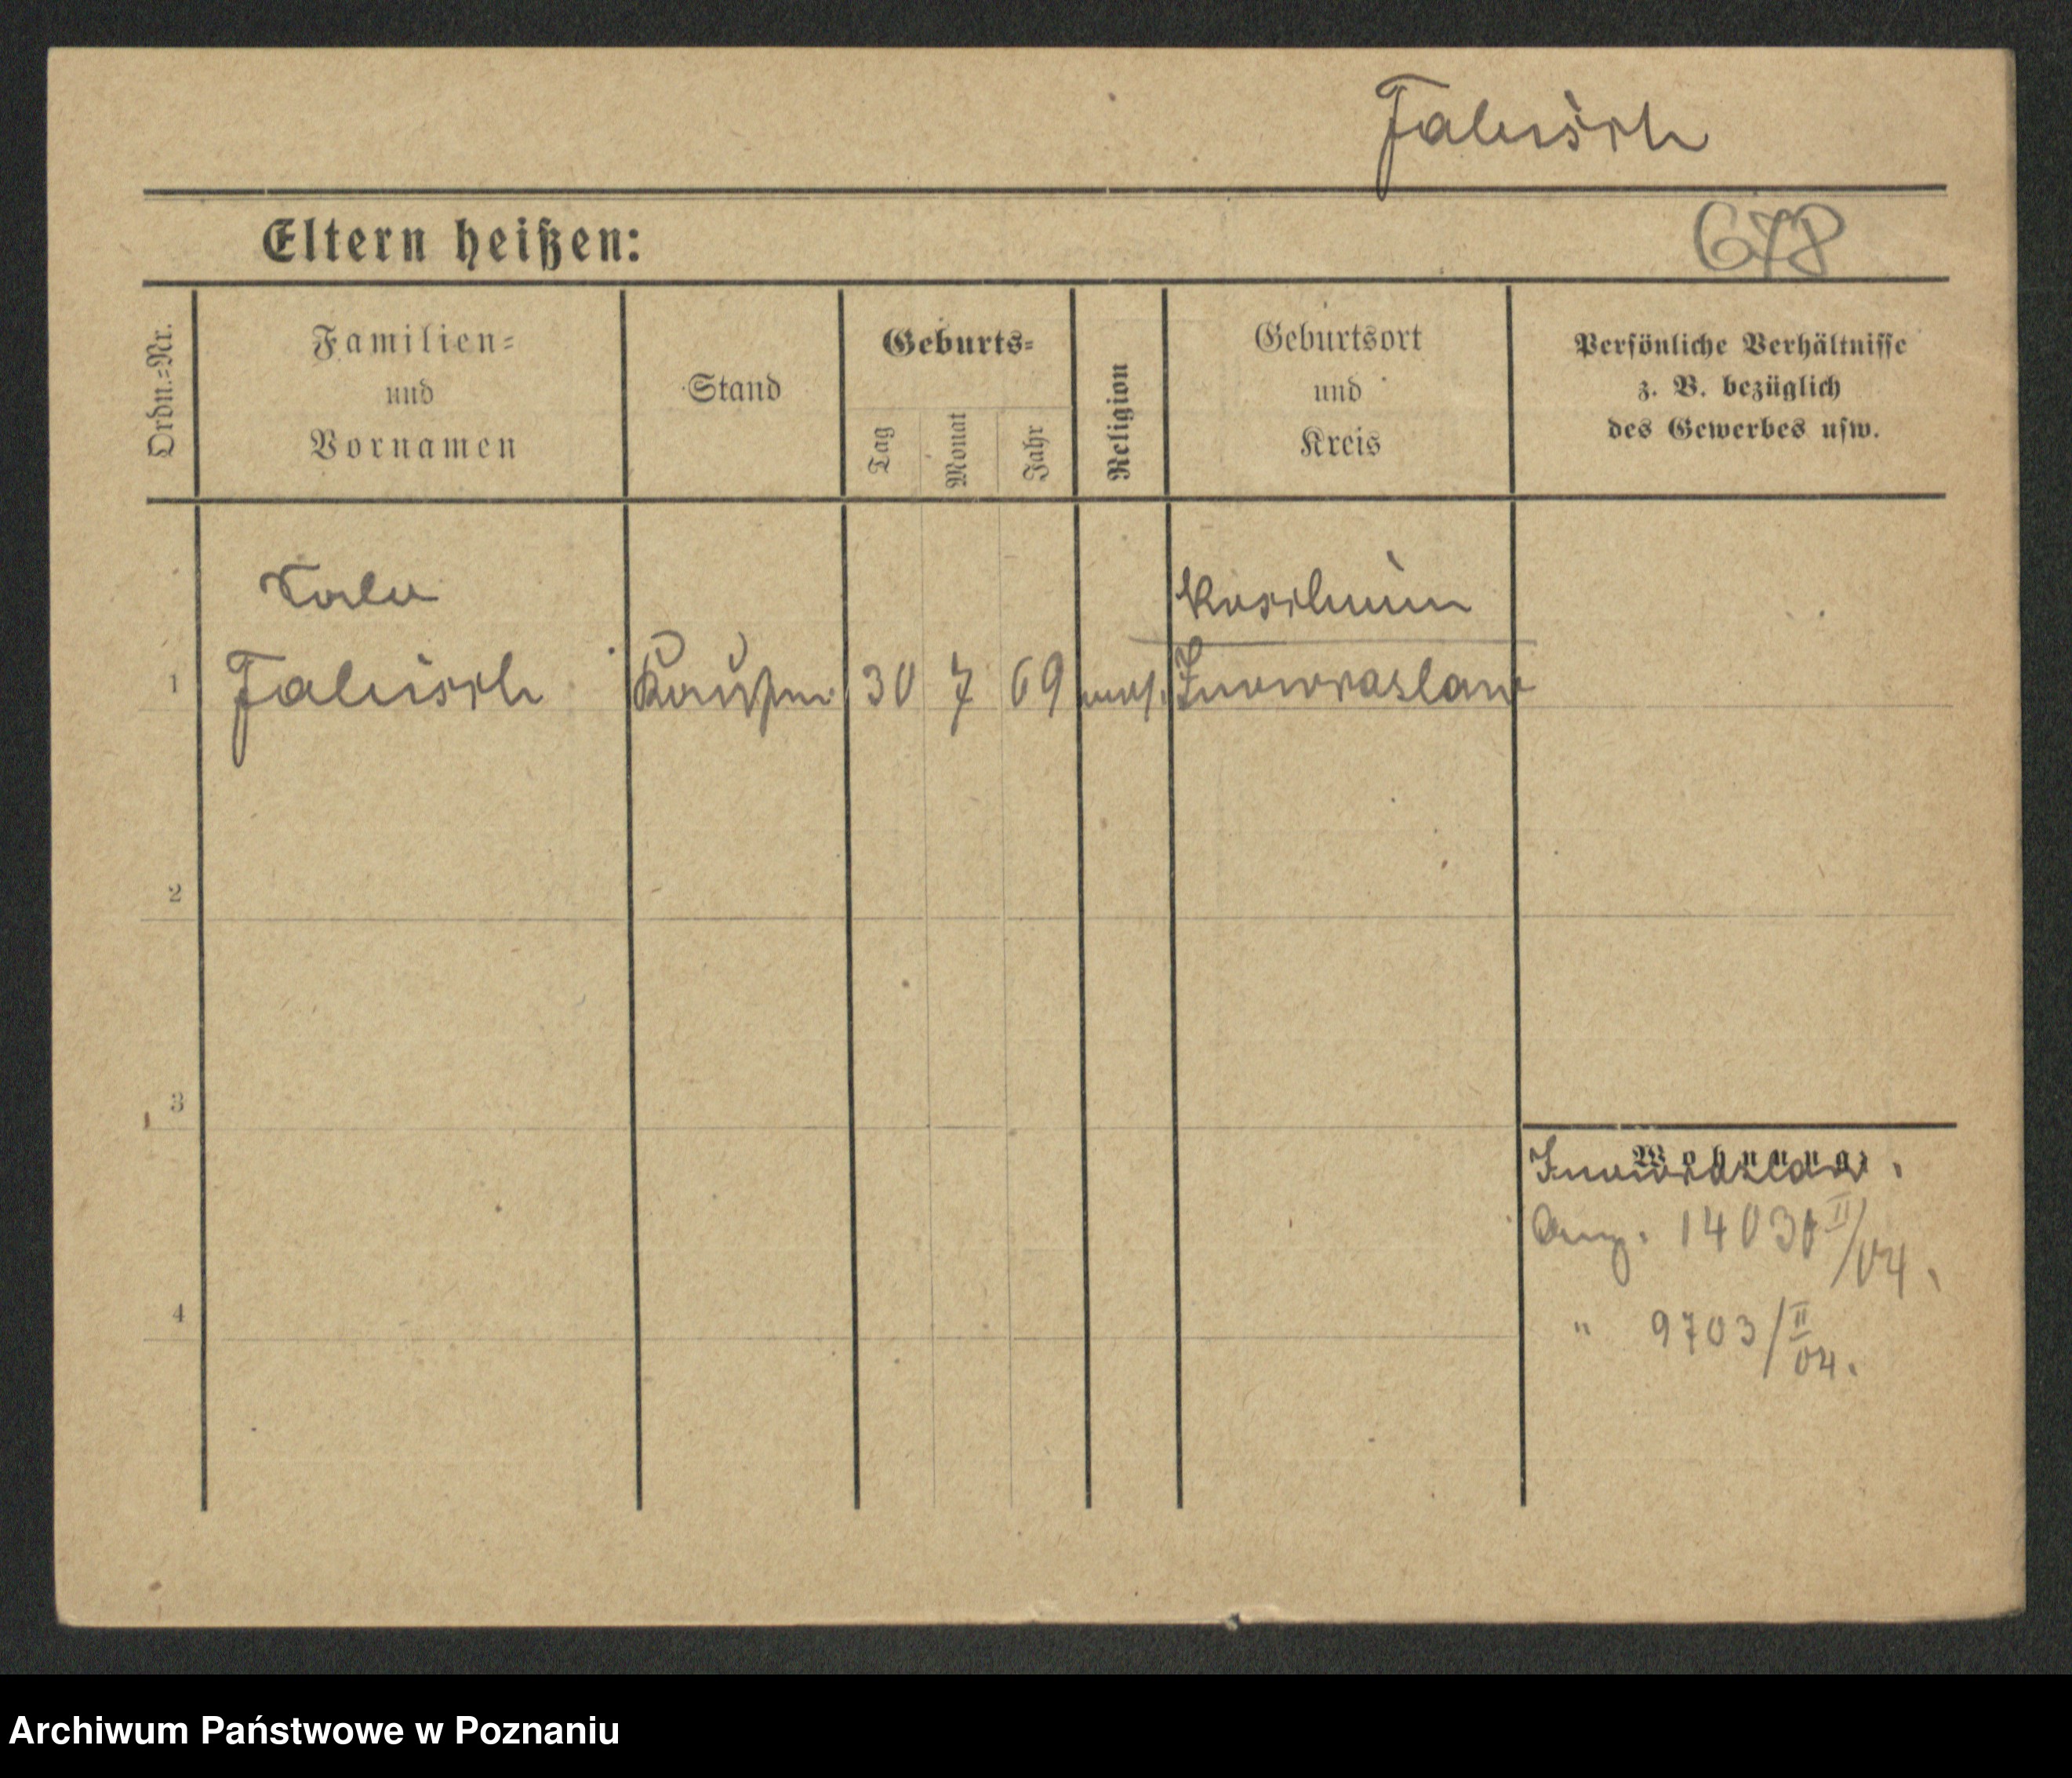 Jabusch
Eltern heißen:
678
Ordn.=Nr.
Familien=
und
Vornamen
Stand
Geburts=
Tag
Monat
Jahr
Religion
Geburtsort
und
Kreis
Persönliche Verhältnisse
z. B. bezüglich
des Gewerbes usw.
1
Kaufm
30
7
69
Inowrazlaw
2
3
4
Wohnung
Inowrazlaw.
Ang. 14030 II/04.
" 9703/II/04.
Archiwum Państwowe w Poznaniu